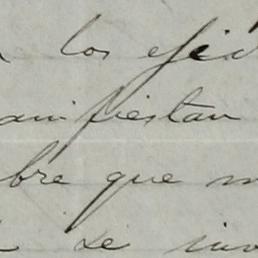 los ejid
anifiestan
bre que
se